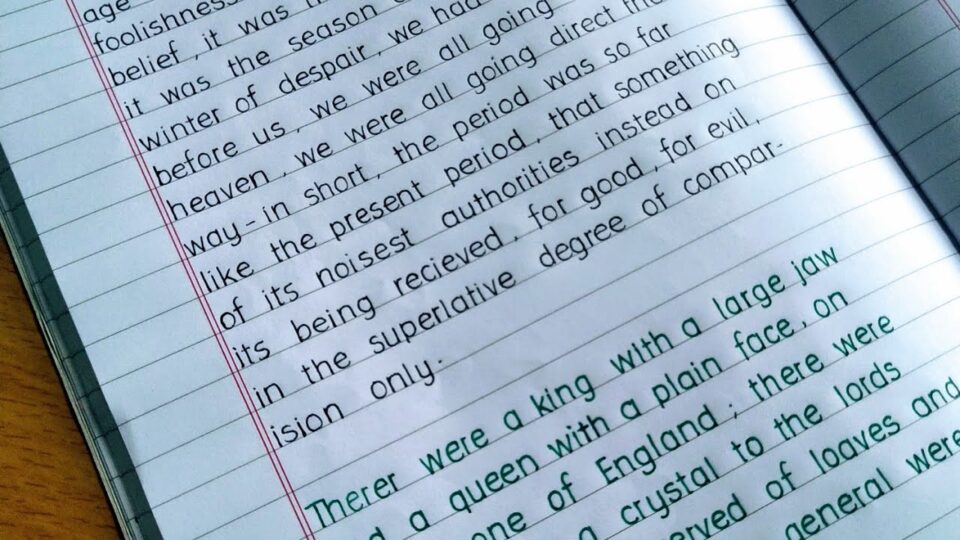 age
foolishness
belief, it was
it was the season
winter of despair, we had
before us, we were all going
heaven, we were all going direct
way - in short, the period was so far
like the present period, that something
of its noisest authorities instead on
its being recieved, for good, for evil,
in the superlative degree of compar-
ision only.
Therer were a king with a large jaw
d a queen with a plain face, on
one of England; there were
a crystal to the lords
erved of loaves and
general were